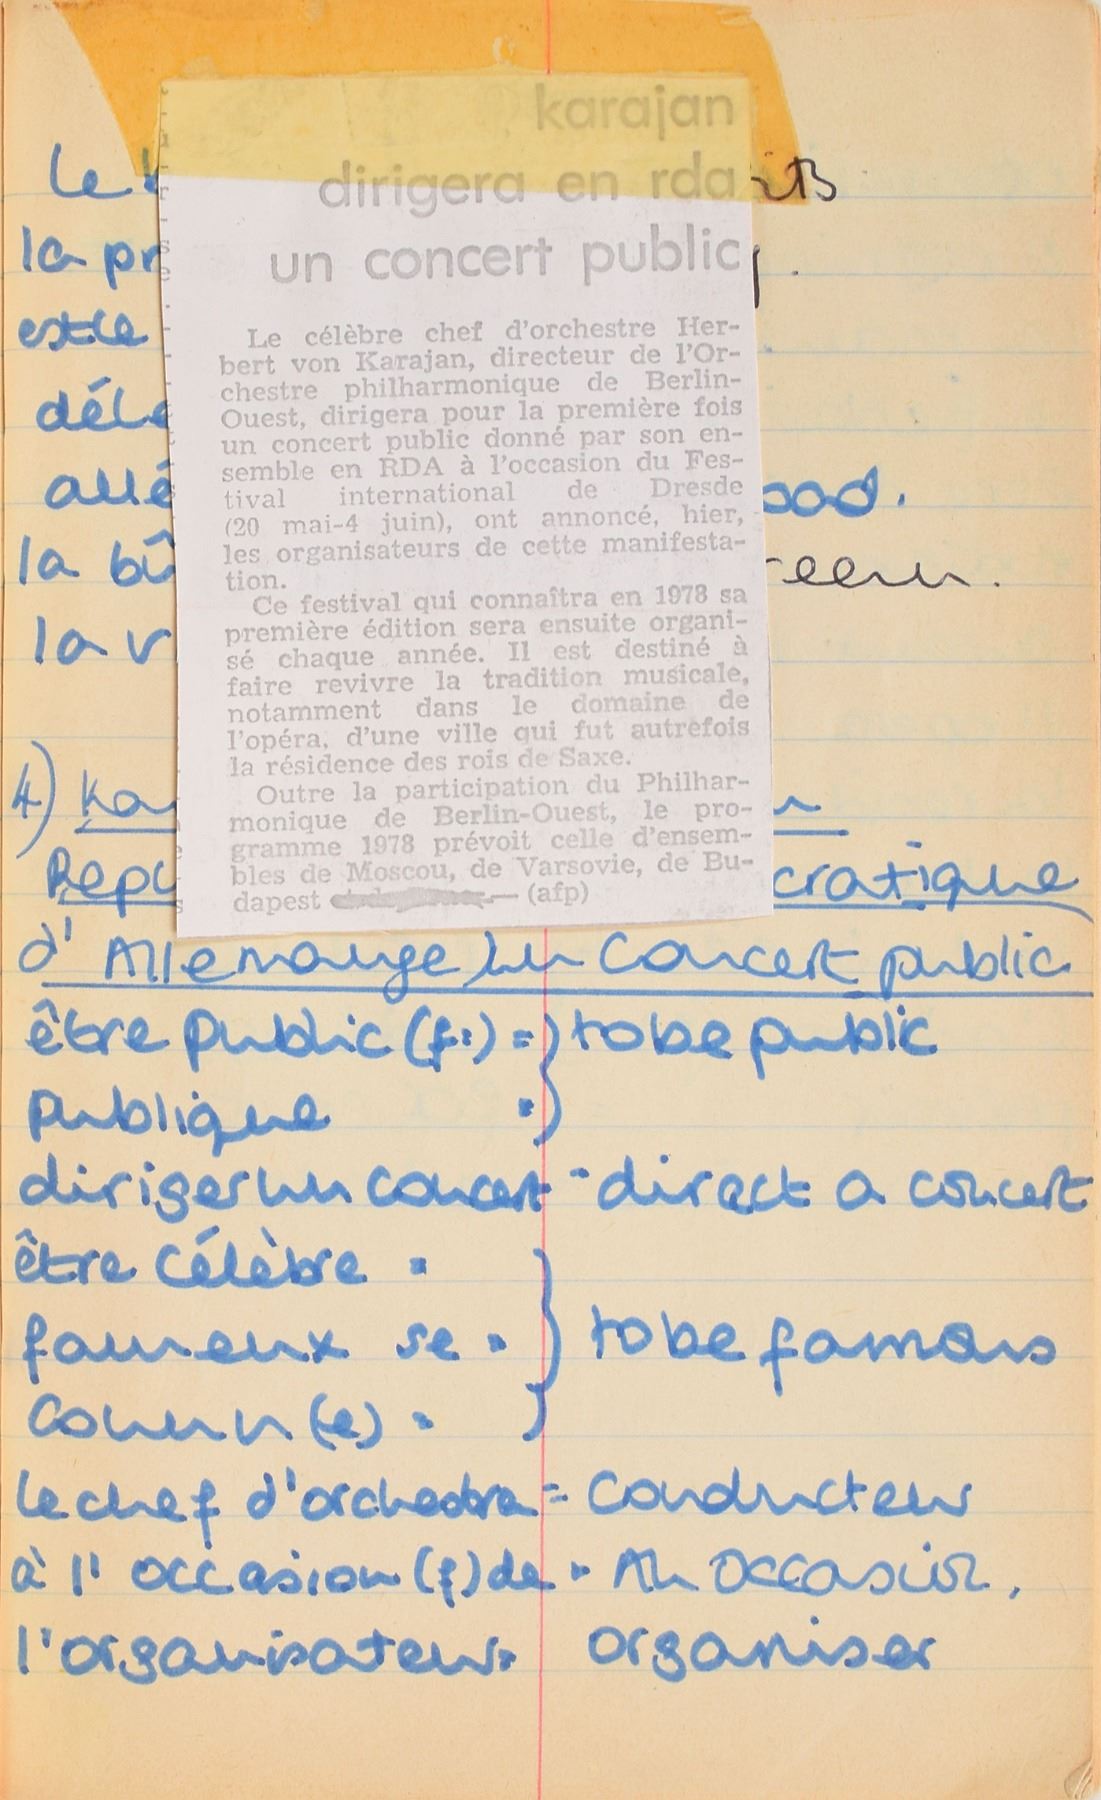 karajan
dirigera en rda
un concert public
Le célèbre chef d'orchestre Her-
bert von Karajan, directeur de l'Or-
chestre philharmonique de Berlin-
Ouest, dirigera pour la première fois
un concert public donné par son en-
semble en RDA à l'occasion du Fes-
tival international de Dresde
(20 mai-4 juin), ont annoncé, hier,
les organisateurs de cette manifesta-
tion.
Ce festival qui connaîtra en 1978 sa
première édition sera ensuite organi-
sé chaque année. Il est destiné à
faire revivre la tradition musicale,
notamment dans le domaine de
l'opéra, d'une ville qui fut autrefois
la résidence des rois de Saxe.
Outre la participation du Philhar-
monique de Berlin-Ouest, le pro-
gramme 1978 prévoit celle d'ensem-
bles de Moscou, de Varsovie, de Bu-
dapest — (afp)
le
la pr
délé
allé ood.
la bû reen.
la v
4) Ka
Répu cratique
d'Allemange) un concert public
être public (f:) = } to be public
publique = }
diriger un concert = direct a concert
être célèbre = }
fameux se = } to be famous
connu (e) = }
le chef d'orchestre = conducteur
à l'occasion (f) de = An occasion.
l'organisateur = organiser